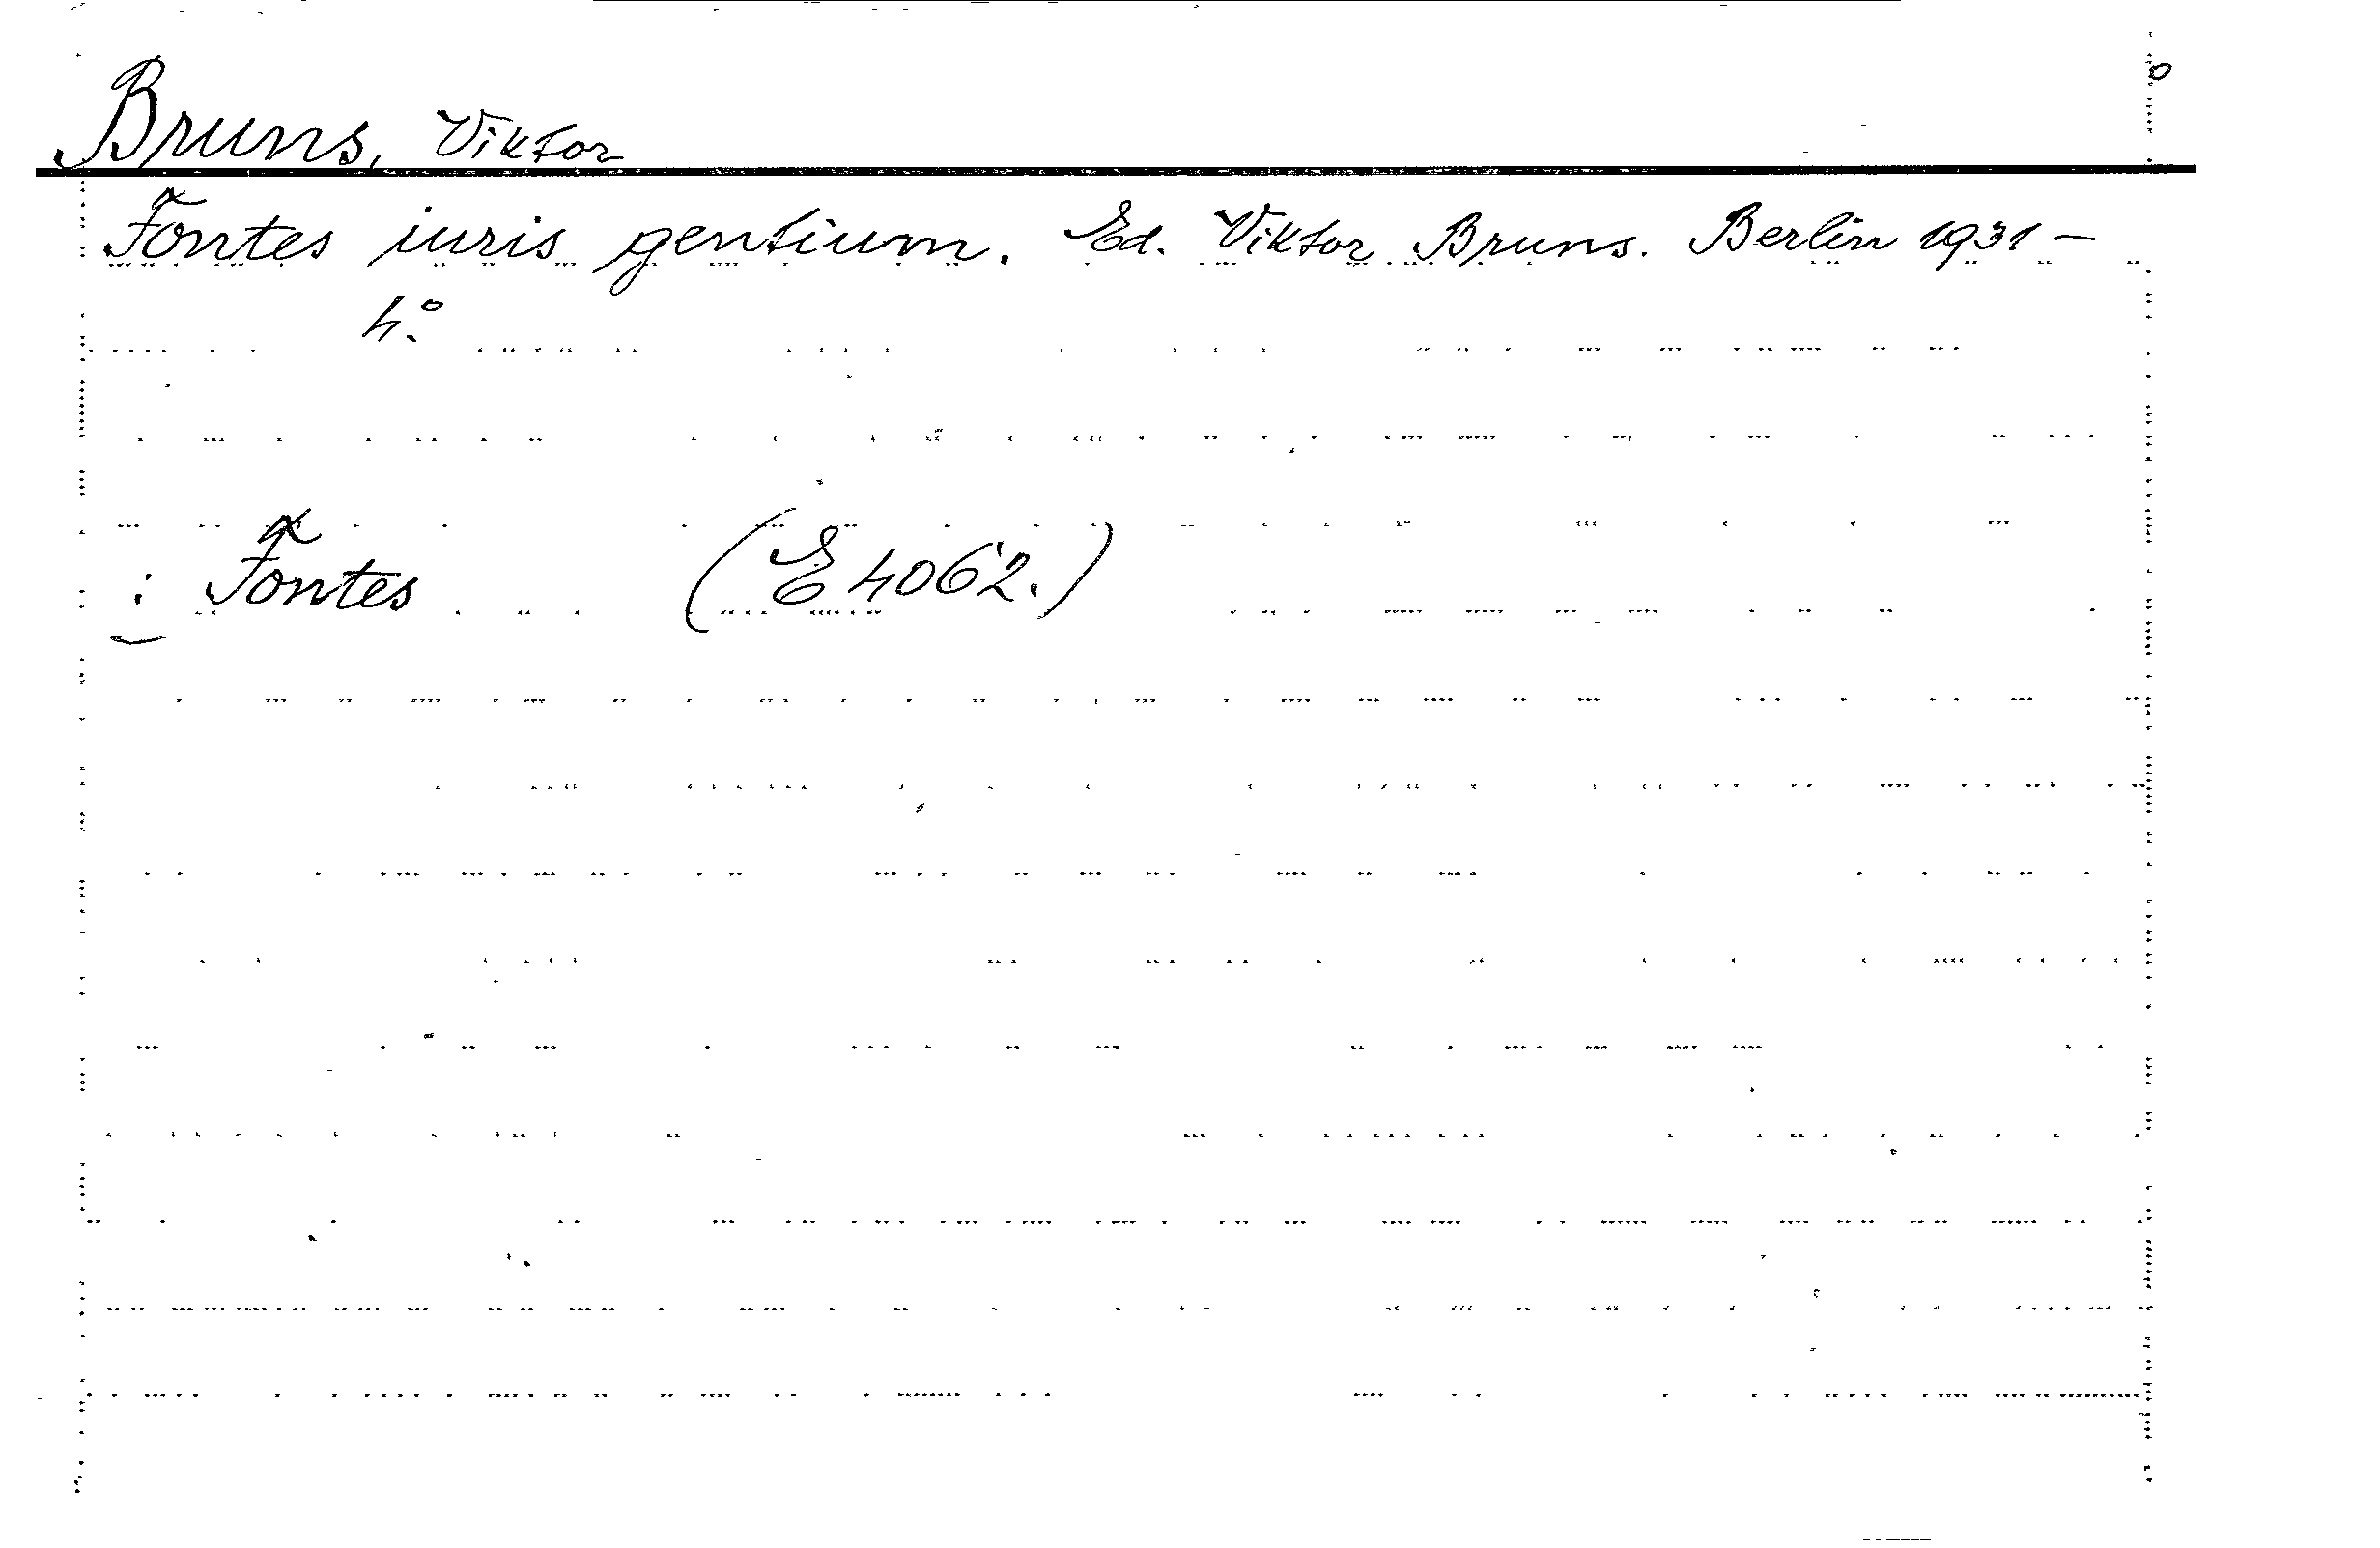 Bruns, Viktor
Fontes iuris gentium. Ed. Viktor Bruns. Berlin 1931 –
4.°
: Fontes (E 4062.)